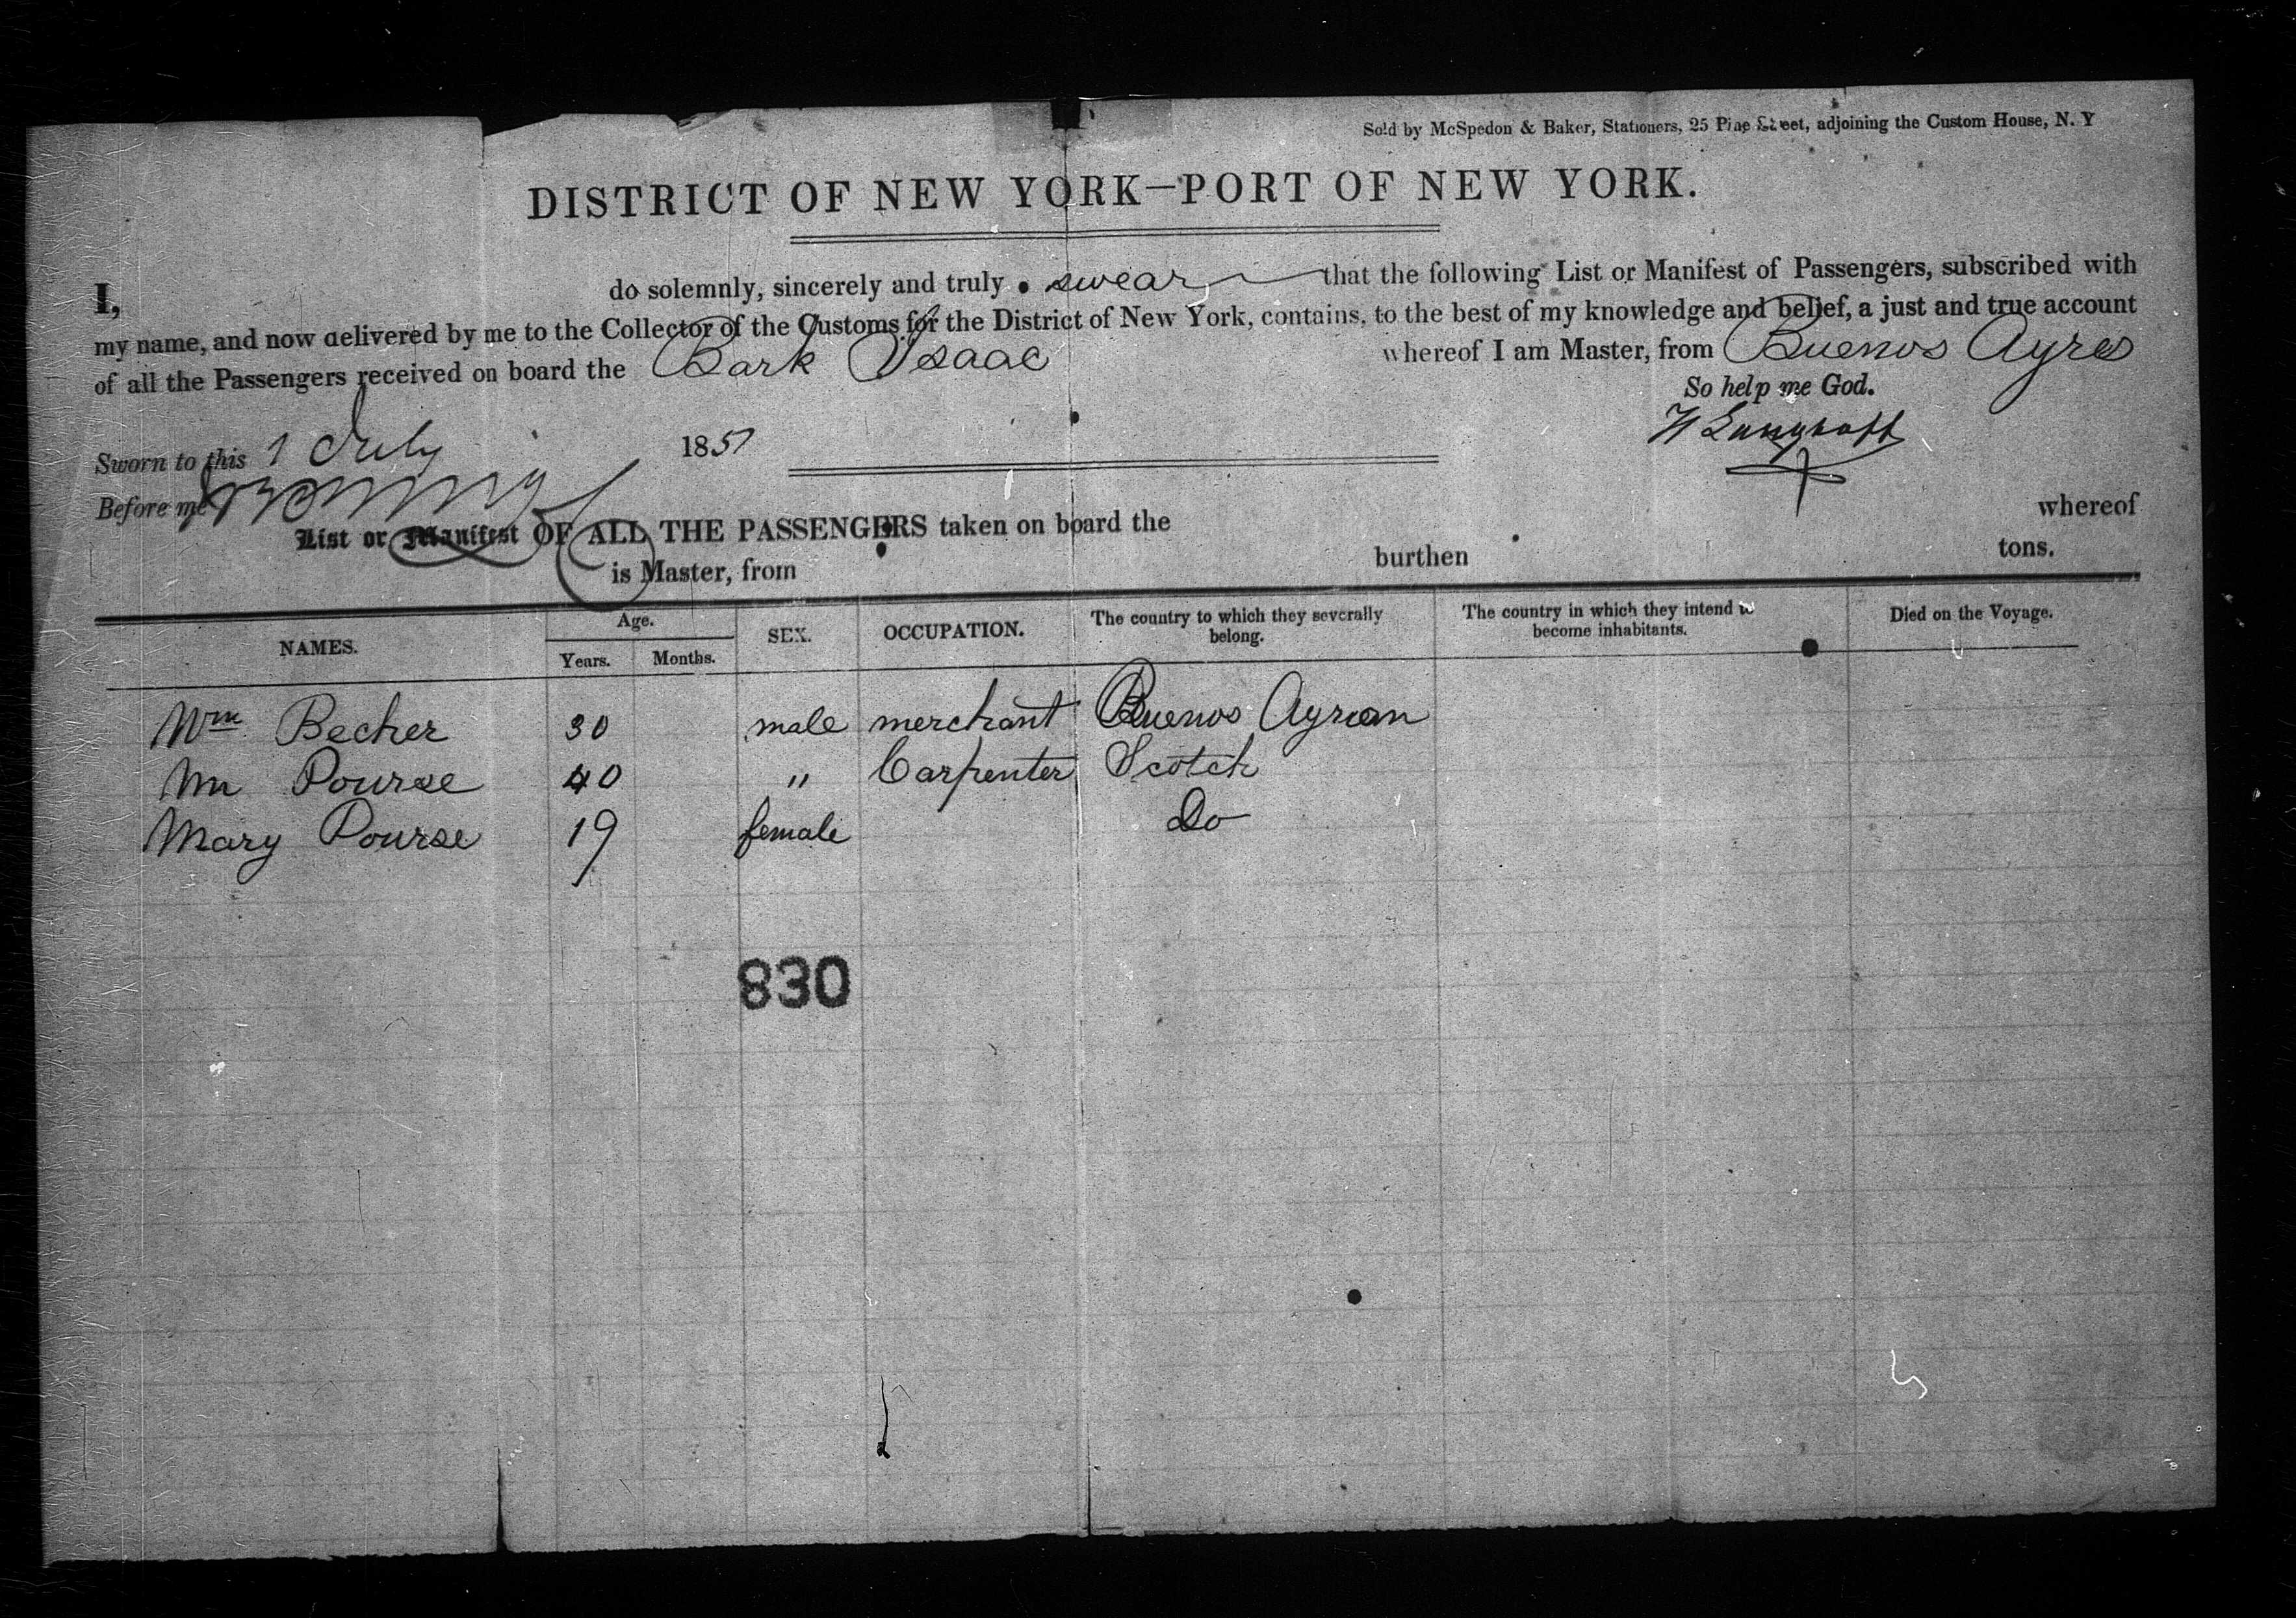 Sold by McSpedon & Baker, Stationers, 25 Pine Street, adjoining the Custom House, N. Y
DISTRICT OF NEW YORK—PORT OF NEW YORK.
I, do solemnly, sincerely and truly swear that the following List or Manifest of Passengers, subscribed with
my name, and now delivered by me to the Collector of the Customs for the District of New York, contains, to the best of my knowledge and belief, a just and true account
of all the Passengers received on board the Bark Isaac whereof I am Master, from Buenos Ayres
So help me God.
Sworn to this 1 July 1851
Before me
List or Manifest OF ALL THE PASSENGERS taken on board the whereof
is Master, from burthen tons.
NAMES. Age. Years. Months. SEX. OCCUPATION. The country to which they severally belong. The country in which they intend to become inhabitants. Died on the Voyage.
Wm Becher 30 male merchant Buenos Ayrean
Wm Pourse 40 " Carpenter Scotch
Mary Pourse 19 female Do
830